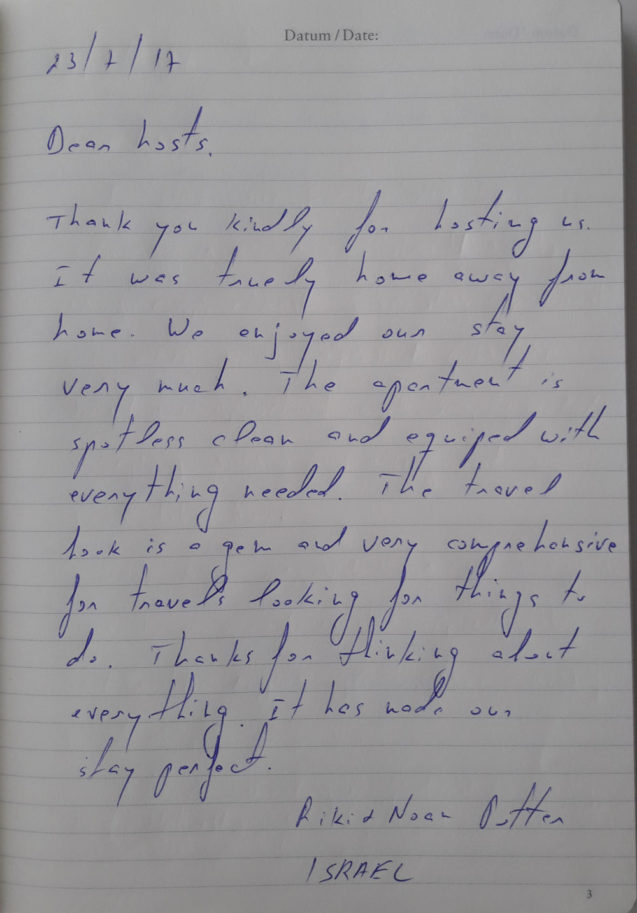 Datum / Date:
23/7/17
Dear hosts.
Thank you kindly for hosting us.
It was truely home away from
home. We enjoyed our stay
very much. The apartment is
spotless clean and equiped with
everything needed. The travel
book is a gem and very comprehensive
for travels looking for things to
do. Thanks for thinking about
everything. It has made our
stay perfect.
Riki & Noam
ISRAEL
3